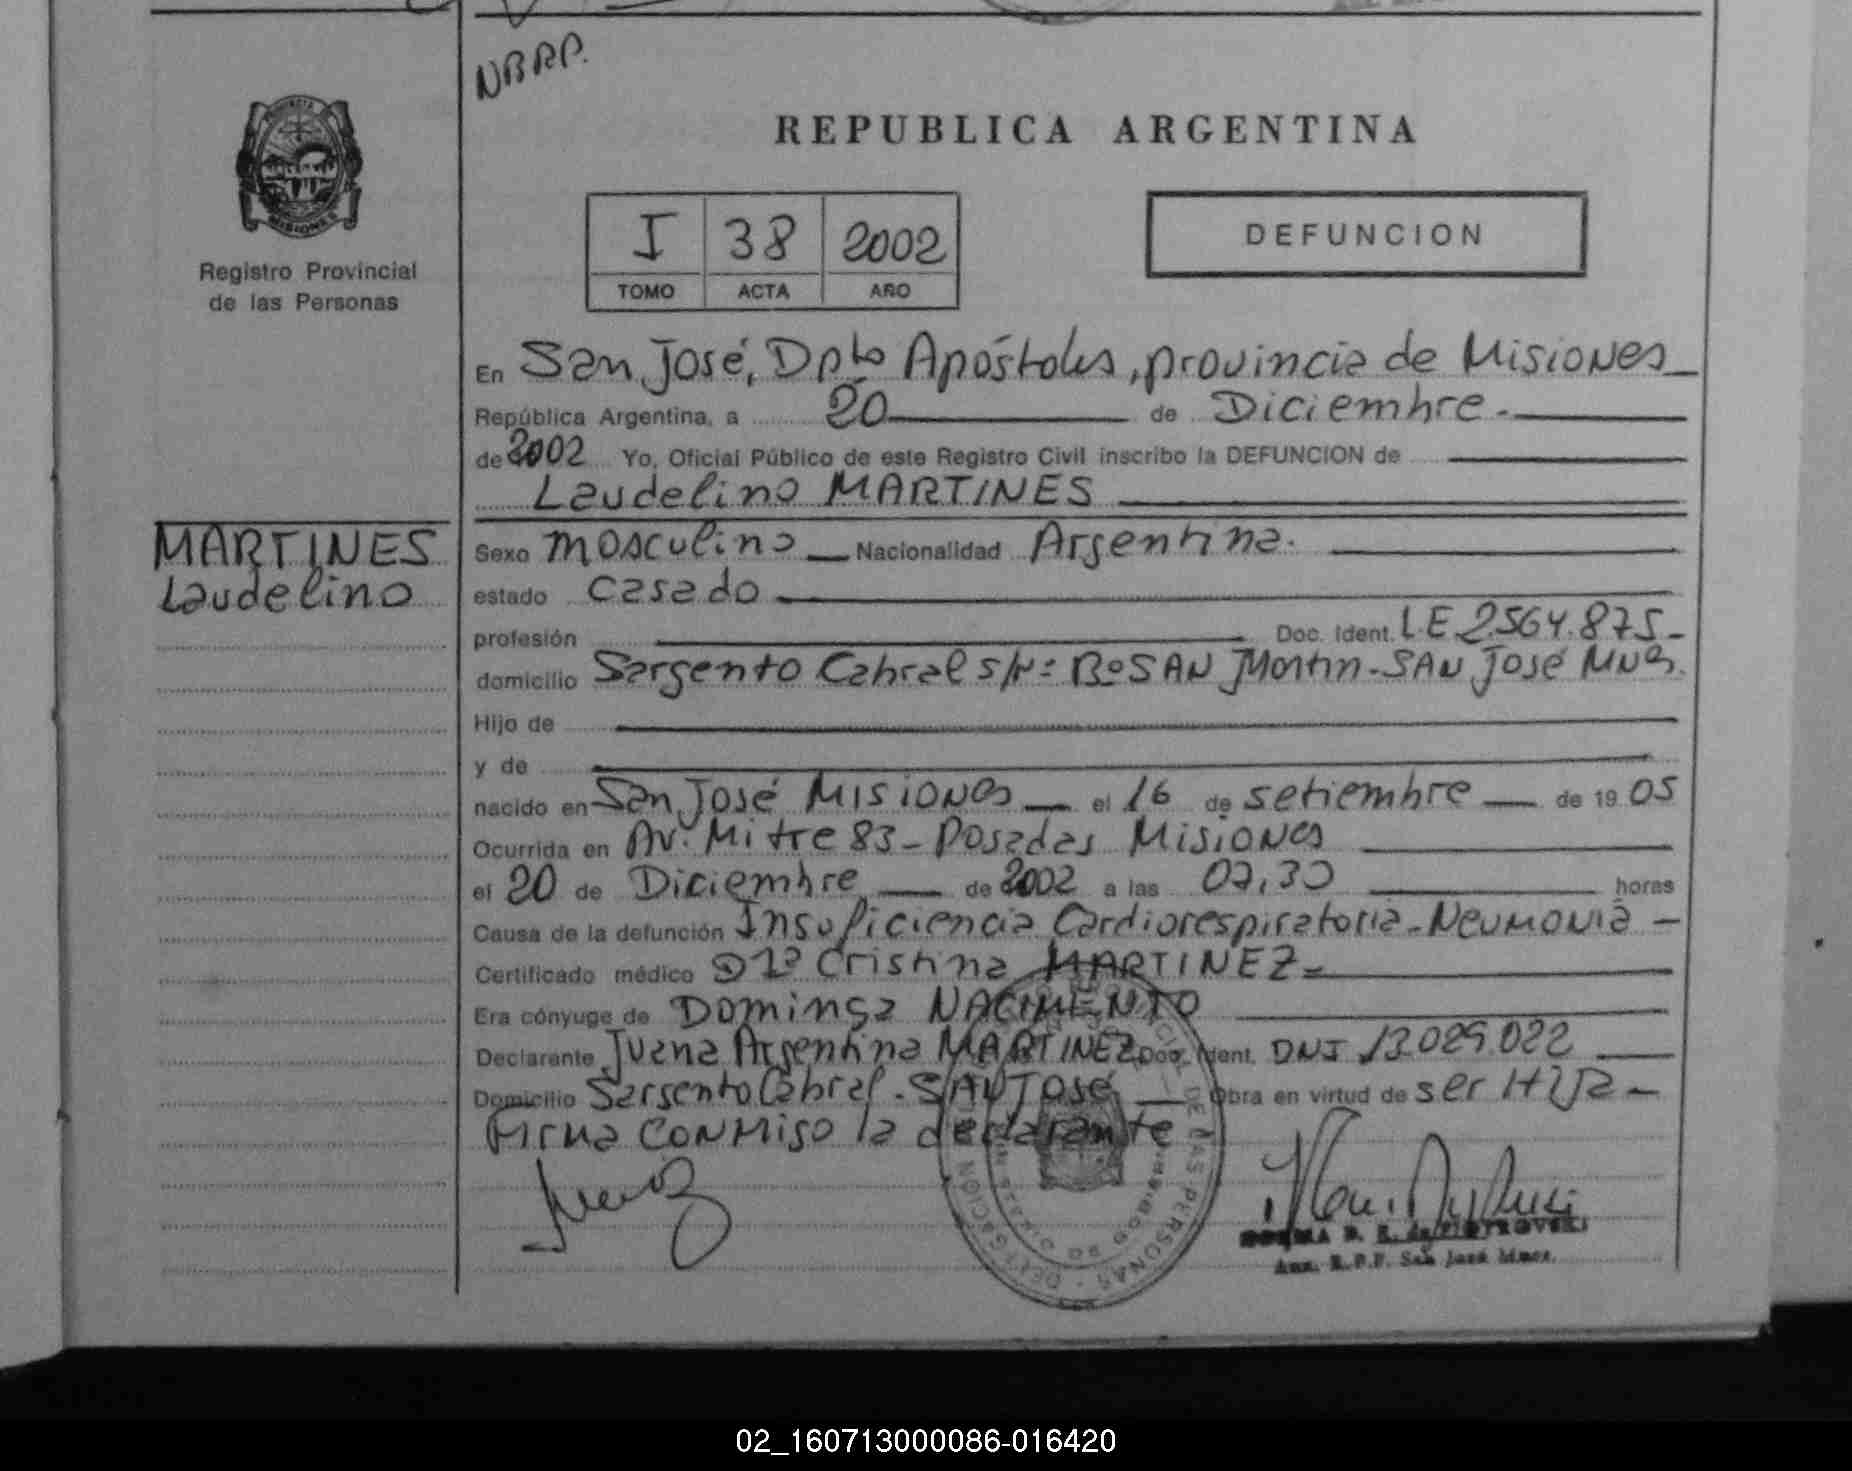 NBRP.
REPUBLICA ARGENTINA
I 38 2002
TOMO ACTA AÑO
DEFUNCION
Registro Provincial
de las Personas
En San José, Dpto Apóstoles, provincia de Misiones
República Argentina, a 20 de Diciembre.
de 2002 Yo, Oficial Público de este Registro Civil inscribo la DEFUNCION de
Laudelino MARTINES
MARTINES
Laudelino
Sexo masculino Nacionalidad Argentina.
estado casado
profesión Doc. Ident. L.E 2.564.875
domicilio Sargento Cabral s/Nº Bº SAN Martin - SAN José Mnes.
Hijo de
y de
nacido en San José Misiones el 16 de setiembre de 19 05
Ocurrida en Av. Mitre 83 - Posadas Misiones
el 20 de Diciembre de 2002 a las 07,30 horas
Causa de la defunción Insuficiencia Cardiorespiratoria - Neumonia -
Certificado médico Dra Cristina MARTINEZ
Era cónyuge de Dominga NACIMIENTO
Declarante Juana Argentina MARTINEZ Doc. Ident. DNI 13.029.022
Domicilio Sargento Cabral - SAN José Obra en virtud de ser HIJA -
Firma conmigo la declarante
Aux. R.P.P. San José Mnes.
02_160713000086-016420